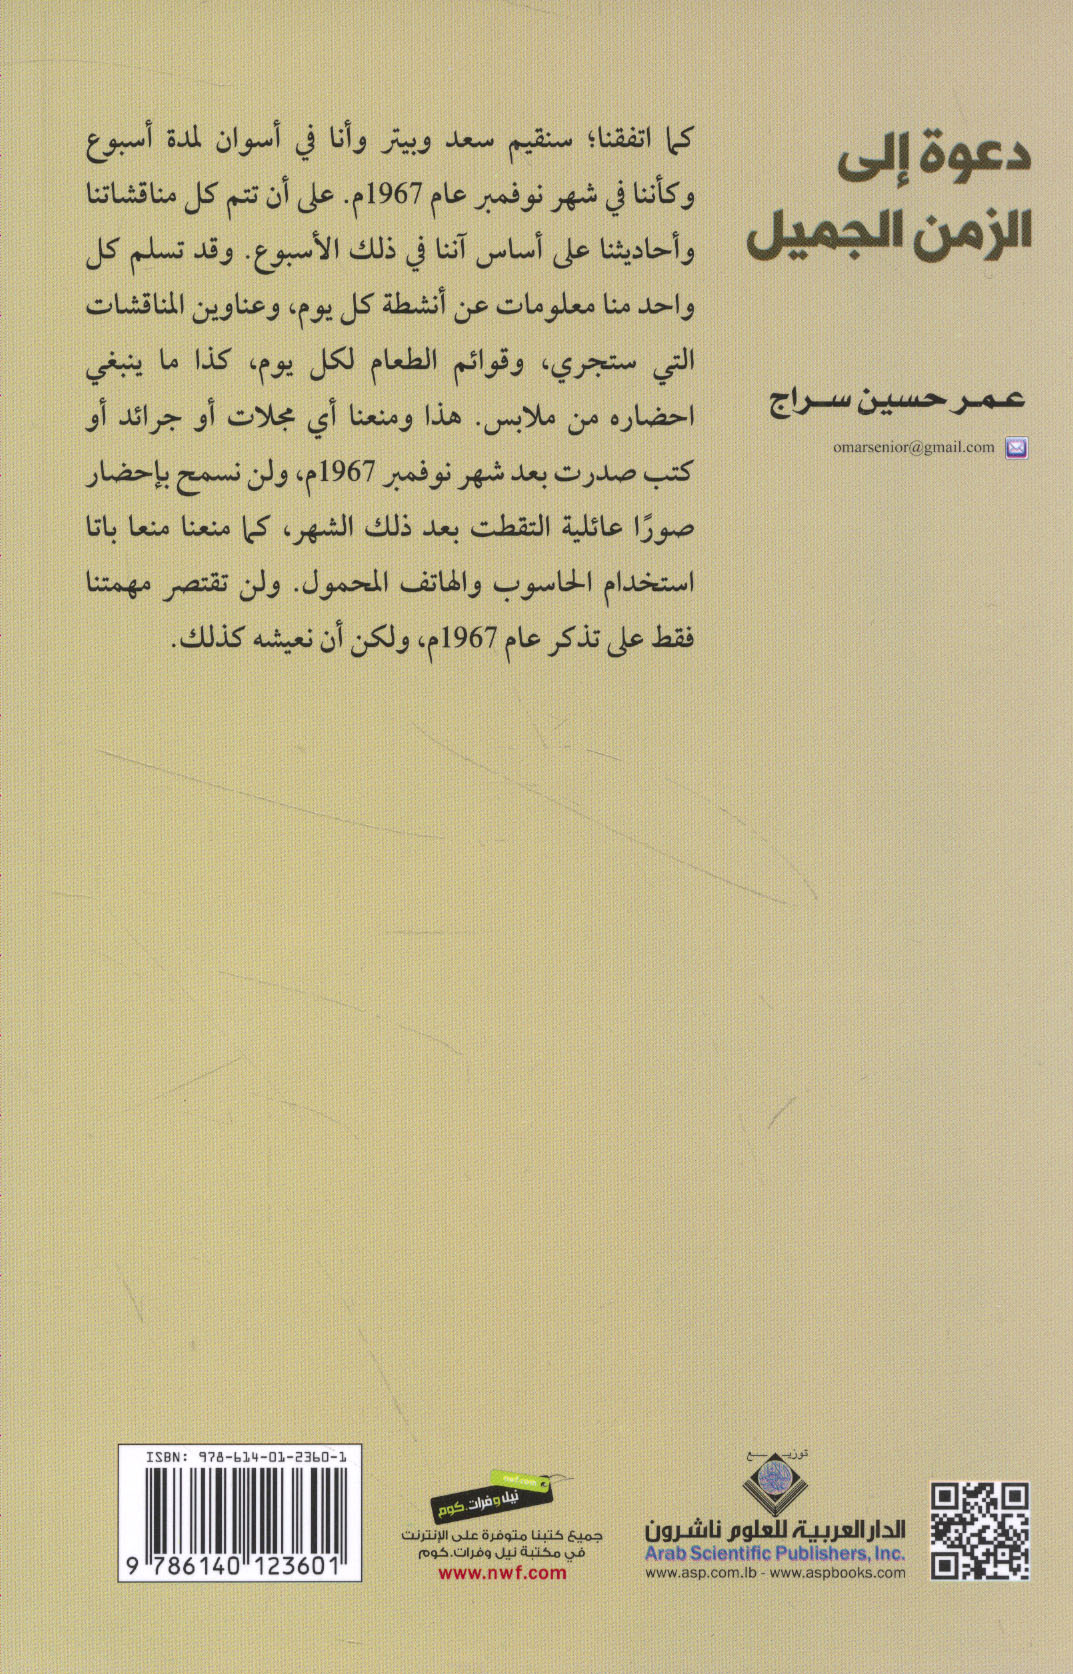 دعوة إلى
الزمن الجميل
عمر حسين سراج
omarsenior@gmail.com
كما اتفقنا؛ سنقيم سعد وبيتر وأنا في أسوان لمدة أسبوع
وكأننا في شهر نوفمبر عام 1967م. على أن تتم كل مناقشاتنا
وأحاديثنا على أساس آننا في ذلك الأسبوع. وقد تسلم كل
واحد منا معلومات عن أنشطة كل يوم، وعناوين المناقشات
التي ستجري، وقوائم الطعام لكل يوم، كذا ما ينبغي
احضاره من ملابس. هذا ومنعنا أي مجلات أو جرائد أو
كتب صدرت بعد شهر نوفمبر 1967م، ولن نسمح بإحضار
صورًا عائلية التقطت بعد ذلك الشهر، كما منعنا منعا باتا
استخدام الحاسوب والهاتف المحمول. ولن تقتصر مهمتنا
فقط على تذكر عام 1967م، ولكن أن نعيشه كذلك.
توزيع
الدار العربية للعلوم ناشرون
Arab Scientific Publishers, Inc.
www.asp.com.lb - www.aspbooks.com
nwf.com
نيل وفرات.كوم
جميع كتبنا متوفرة على الإنترنت
في مكتبة نيل وفرات.كوم
www.nwf.com
ISBN: 978-614-01-2360-1
9 786140 123601